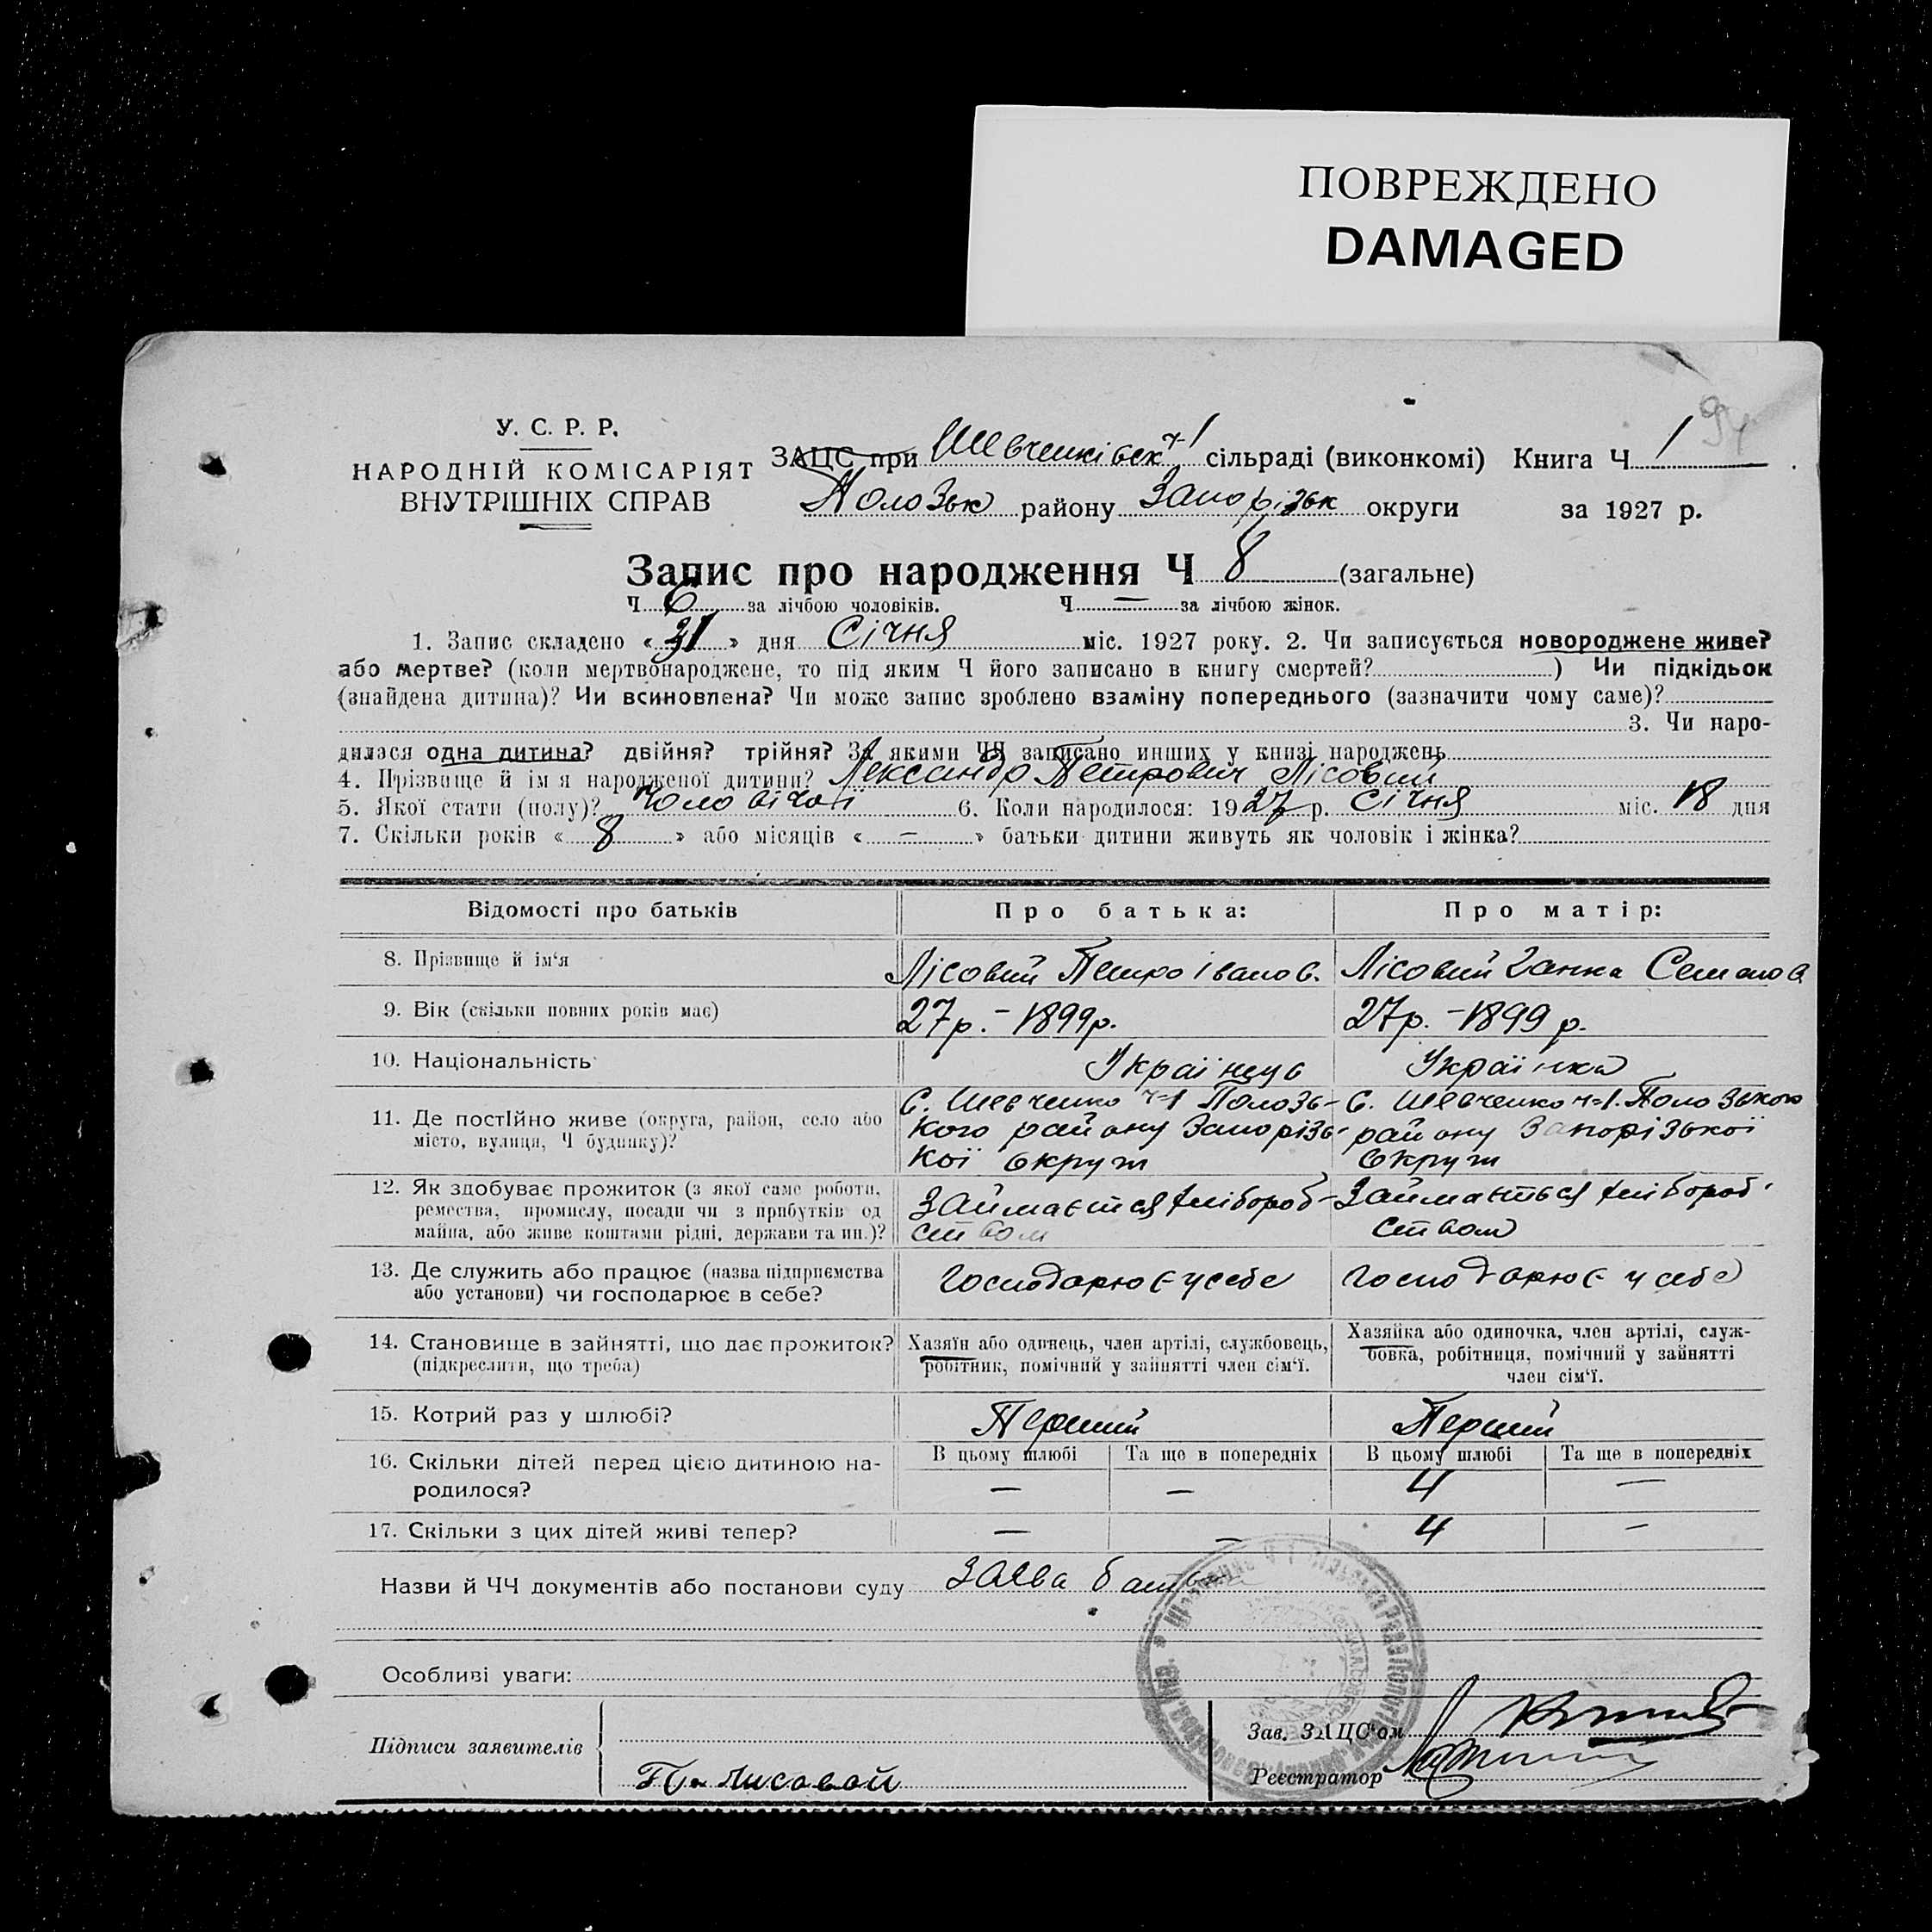 ПОВРЕЖДЕНО
DAMAGED
94
У. С. Р. Р.
НАРОДНІЙ КОМІСАРІЯТ
ВНУТРІШНІХ СПРАВ
ЗАЦС при Шевченківськ ч-1 сільраді (виконкомі) Книга Ч 1
Полозьк району Запорізьк округи за 1927 р.
Запис про народження Ч 8 (загальне)
Ч 6 за лічбою чоловіків. Ч — за лічбою жінок.
1. Запис складено « 31 » дня Січня міс. 1927 року. 2. Чи записується новороджене живе?
або мертве? (коли мертвонароджене, то під яким Ч його записано в книгу смертей? ) Чи підкідьок
(знайдена дитина)? Чи всиновлена? Чи може запис зроблено взаміну попереднього (зазначити чому саме)?
3. Чи наро-
дилася одна дитина? двійня? трійня? За якими ЧЧ записано инших у книзі народжень
4. Прізвище й ім я народженої дитини? Лександр Петрович Лісовий
5. Якої стати (полу)? Чоловічої 6. Коли народилося: 1927 р. Січня міс. 18 дня
7. Скільки років « 8 » або місяців « — » батьки дитини живуть як чоловік і жінка?
Відомості про батьків Про батька: Про матір:
8. Прізвище й ім‘я Лісовий Петро Іванов. Лісовий Ганна Семанов
9. Вік (скільки повних років має) 27р. - 1899р. 27р. - 1899 р.
10. Національність Українць Українка
11. Де постІйно живе (округа, район, село або місто, вулиця, Ч будинку)?
С. Шевченко ч-1 Полозь-
кого району Запорізь-
кої округи
С. Шевченко ч-1. Полозького
району Запорізької
округи
12. Як здобуває прожиток (з якої саме роботи,
ремества, промислу, посади чи з прибутків од
майна, або живе коштами рідні, держави та ин.)?
Займається хлібороб-
ством
Займається хлібороб-
ством
13. Де служить або працює (назва підприємства
або установи) чи господарює в себе?
Господарює у себе
Господарює у себе
14. Становище в зайнятті, що дає прожиток?
(підкреслити, що треба)
Хазяїн або одинець, член артілі, службовець,
робітник, помічний у зайнятті член сім‘ї.
Хазяйка або одиночка, член артілі, служ-
бовка, робітниця, помічний у зайнятті
член сім‘ї.
15. Котрий раз у шлюбі? Перший Перший
16. Скільки дітей перед цією дитиною на-
родилося?
В цьому шлюбі Та ще в попередніх В цьому шлюбі Та ще в попередніх
— — 4 —
17. Скільки з цих дітей живі тепер? — — 4 —
Назви й ЧЧ документів або постанови суду Заява батька
Особливі уваги:
Підписи заявителів
П. Лисовой
Зав. ЗАЦС‘ом
Реєстратор